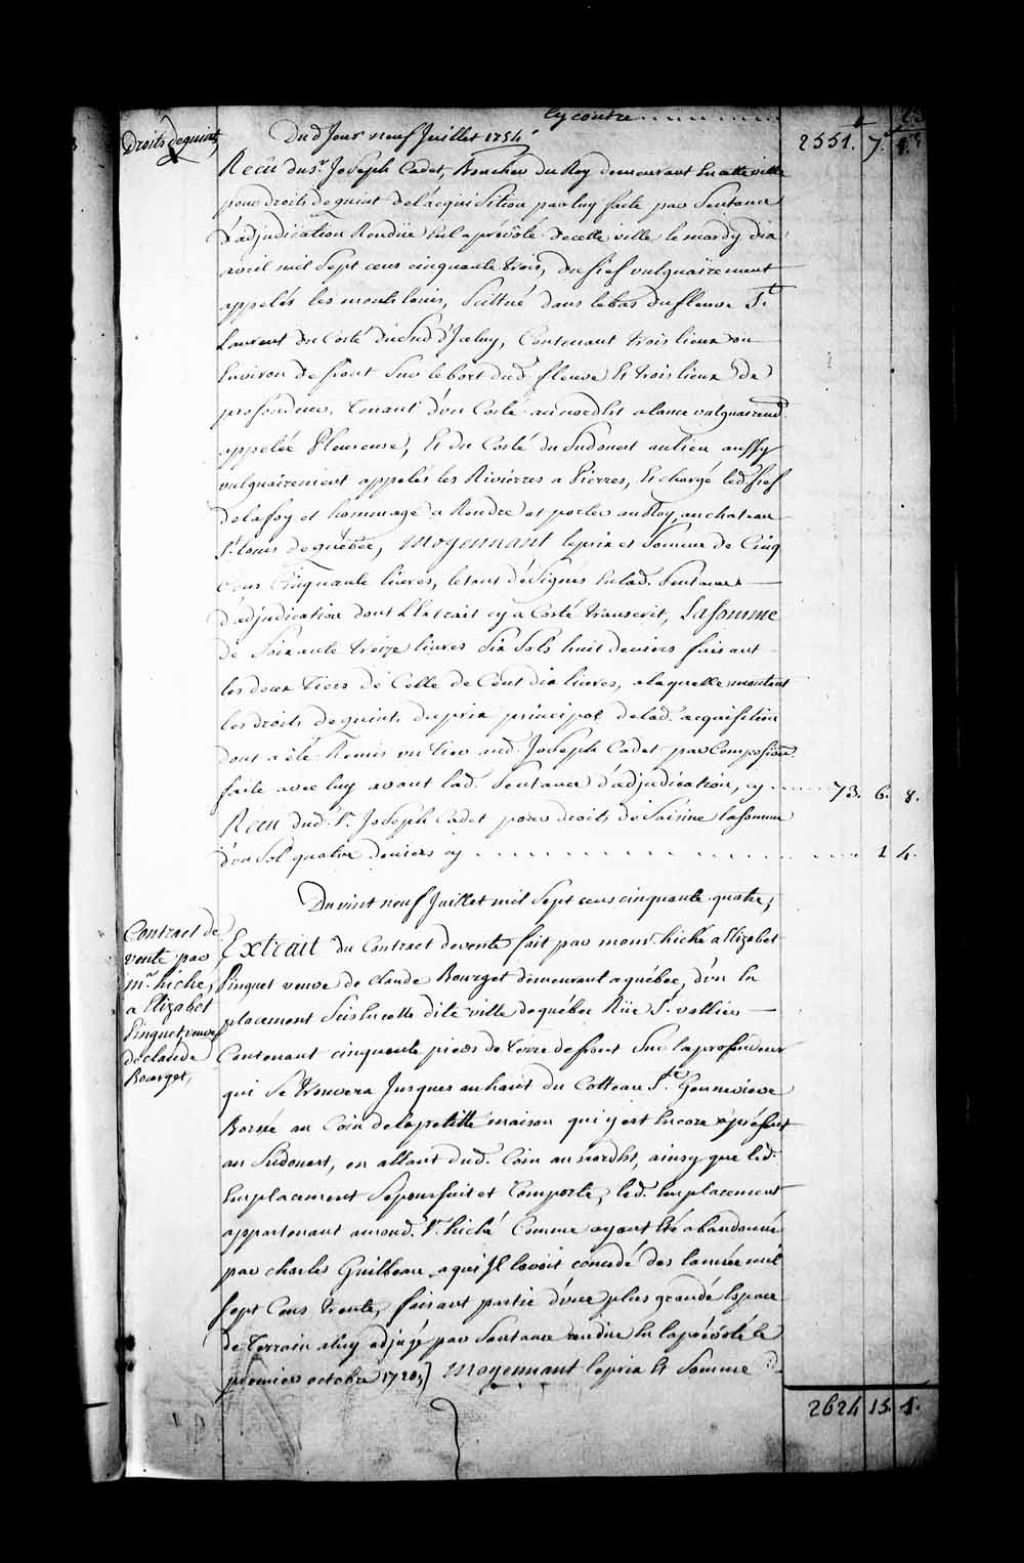 Cy contre ........ 2551. 7. 1.
Droits de quint,
Du d. Jour neuf Juillet 1754
Recu du Sr. Joseph Cadet, Boucher du Roy demeurant En cette ville
pour droits de quint de l'acquisition par luy faite par Sentance
d'adjudication Rendüe En la prévôté de cette ville le mardy dix
avril mil Sept cens cinquante trois, du fief vulguairement
appelés les monts louis, Scittué dans le bas du fleuve St.
Laurent du Costé du Sud d'Jceluy, Contenant trois lieux ou
Environ de front Sur le bort dud. fleuve Et trois lieux de
profondeur, tenant d'un Costé au nordest a lance vulguairemt.
appelée Pleureuse, Et du Costé du Sudouest au lieu aussy
vulguairement appelés les Rivierres a Pierres, Et chargé led. fief
de la foy et hommage a Rendre et porter au Roy, au chateau
St. Louis de quebec, Moyennant le prix et Somme de Cinq
Cens Cinquante livres, le tout désignés En lad. Sentance
d'adjudication dont L'Extrait cy a Costé transcrit, La Somme
de Soixante treize livres Six Sols huit deniers faisant
les deux tiers de Celle de Cent dix livres, a laquelle montent
les droits de quints du prix principal de lad. acquisition
dont a été Remis un tiers aud. Joseph Cadet par Composition
faite avec luy avant lad. Sentance d'adjudication, cy ..... 73. 6. 8.
Recu dud. Sr. Joseph Cadet pour droits de Saisine la Somme
d'un Sol quatre deniers cy ............ 1 4.
Du vint neuf Juillet mil Sept cens cinquante quatre,
Contract de
vente par
mr. hiché,
a Elizabet
Pinguet, veuve
de claude
Bourget,
Extrait du Contract de vente fait par monsr. hiché a Elizabet
Pinguet veuve de claude Bourget demeurant a québec, d'un En
placement Scis En cette dite ville de québec Rüe St. vallier
Contenant cinquante pieds de terre de front Sur la profondeur
qui Se trouvera Jusques au haut du Cotteau Ste. Genneviève
Borné au Coin de la petitte maison qui y est Encore apresent
au Sudouest, en allant dud. Coin au nordest, ainsy que led.
Emplacement Se poursuit et Comporte, led. Emplacement
appartenant aud. Sr. hiché Comme ayant Eté abandonné
par charles Guilbeau a qui Jl lavoit concedé des l'année mil
Sept Cens trente, faisant partie d'une plus grande Espace
de terrain a luy adjugé par Sentance rendüe En la prévôté le
premier octobre 1720,] Moyennant le prix Et Somme d
2624 15. 1.